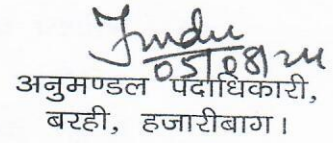 Indu
05/08/24
अनुमण्डल पदाधिकारी,
बरही, हजारीबाग।